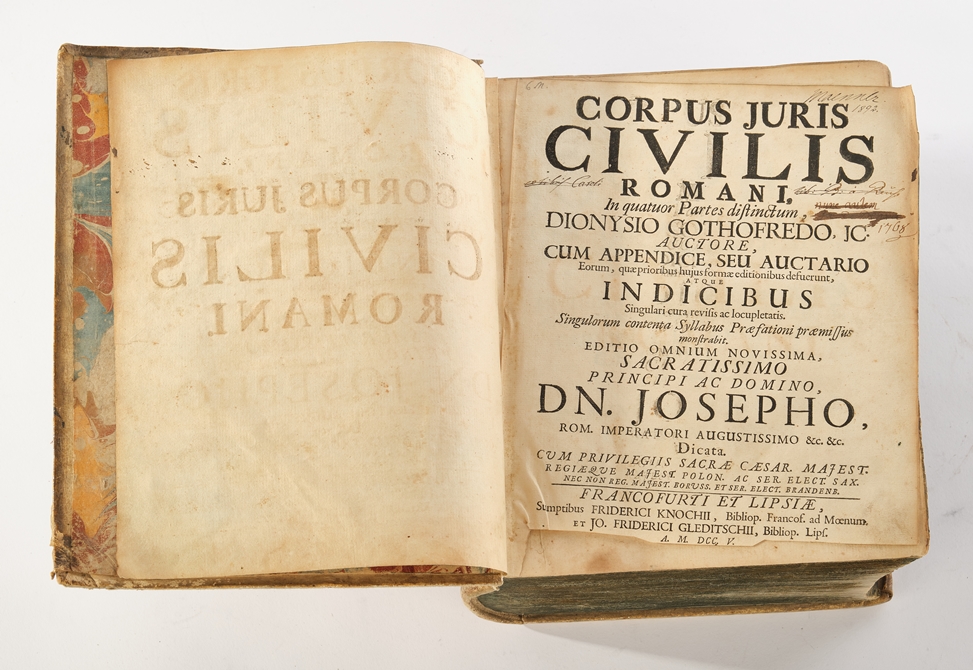 C.M.
1892.
CORPUS JURIS
CIVILIS
ROMANI,
In quatuor Partes distinctum,
DIONYSIO GOTHOFREDO, JC.
1768
AUCTORE,
CUM APPENDICE, SEU AUCTARIO
Eorum, quæ prioribus hujus formæ editionibus defuerunt,
ATQUE
INDICIBUS
Singulari cura revisis ac locupletatis.
Singulorum contenta Syllabus Præfationi præmissus
monstrabit.
EDITIO OMNIUM NOVISSIMA,
SACRATISSIMO
PRINCIPI AC DOMINO,
DN. JOSEPHO,
ROM. IMPERATORI AUGUSTISSIMO &c. &c.
Dicata.
CUM PRIVILEGIIS SACRÆ CÆSAR. MAJEST.
REGIÆQUE MAJEST. POLON. AC SER. ELECT. SAX.
NEC NON REG. MAJEST. BORUSS. ET SER. ELECT. BRANDENB.
FRANCOFURTI ET LIPSIÆ,
Sumptibus FRIDERICI KNOCHII, Bibliop. Francof. ad Mœnum.
ET JO. FRIDERICI GLEDITSCHII, Bibliop. Lipf.
A. M. DCC, V.